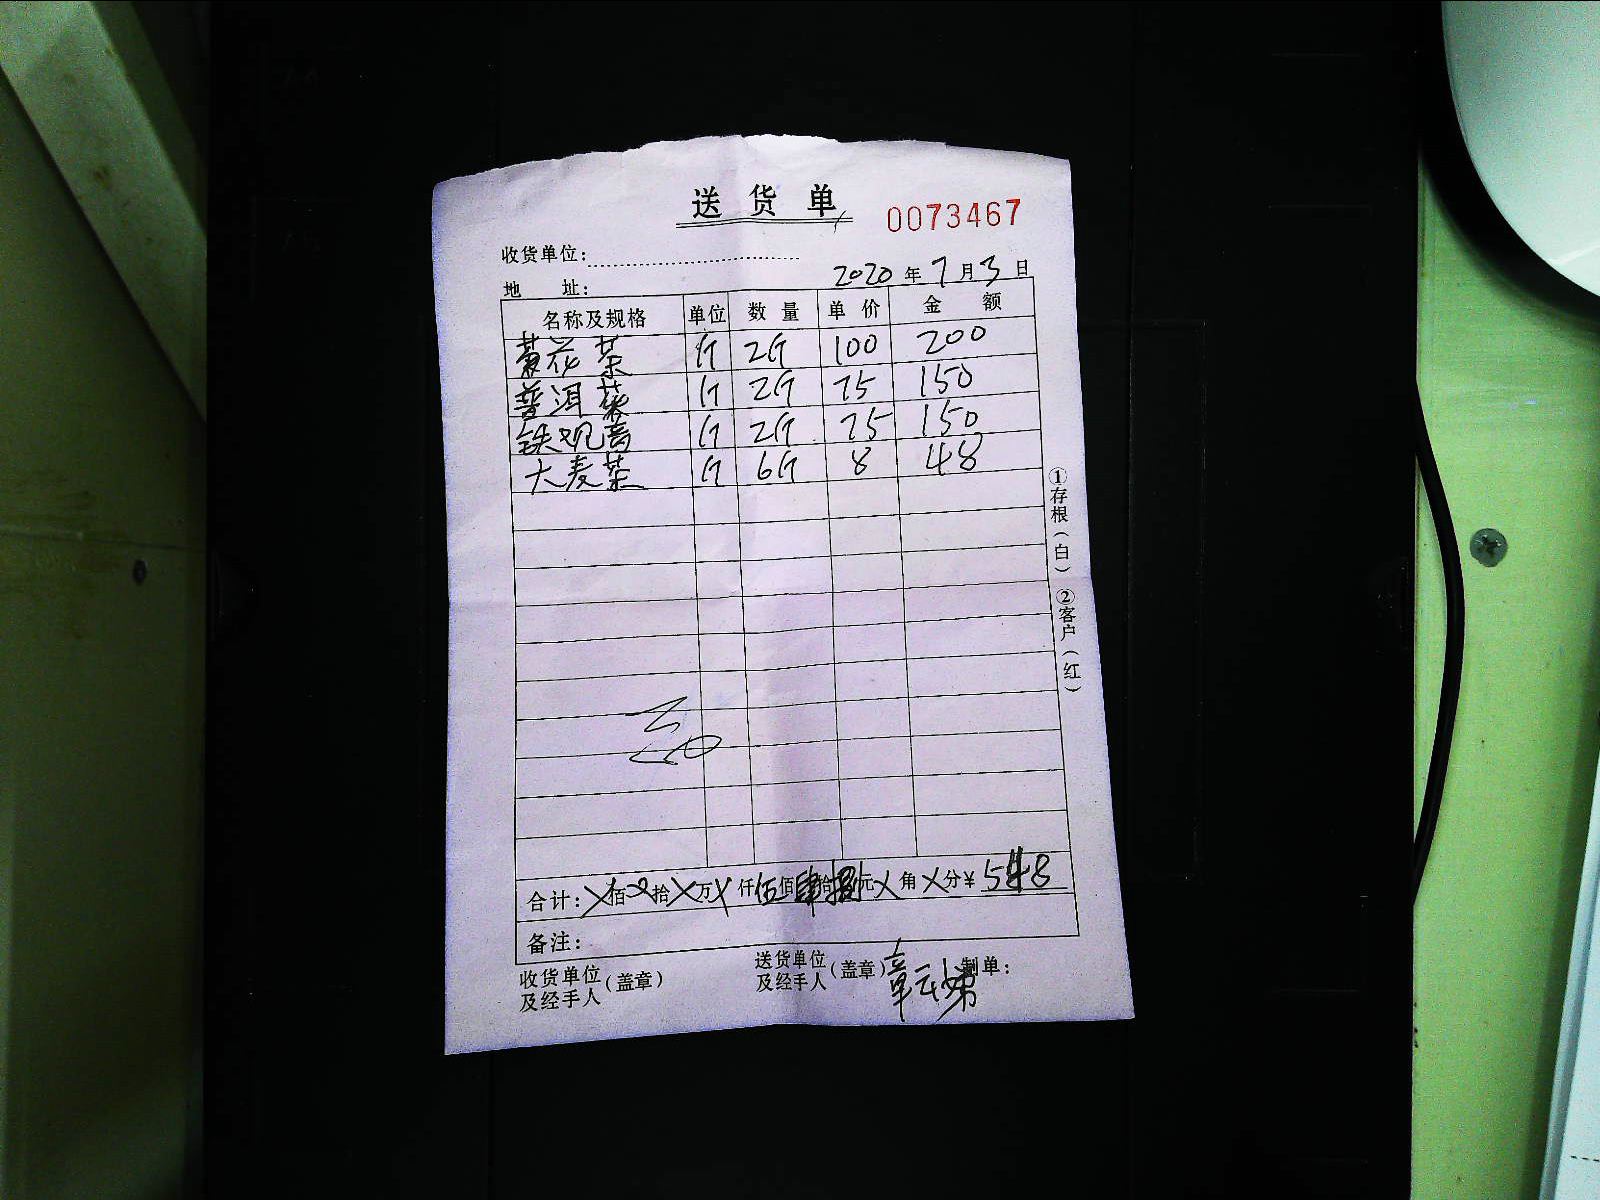 送货单
0073467
收货单位:
2020年7月3日
地 址:
名称及规格 单位 数量 单价 金额
菊花茶 斤 2斤 100 200
普洱茶 斤 2斤 75 150
铁观音 斤 2斤 75 150
大麦茶 斤 6斤 8 48
①存根(白) ②客户(红)
合计: X佰X拾X万X仟伍佰肆拾捌元X角X分¥ 548
备注:
收货单位及经手人(盖章) 送货单位及经手人(盖章) 章 制单: